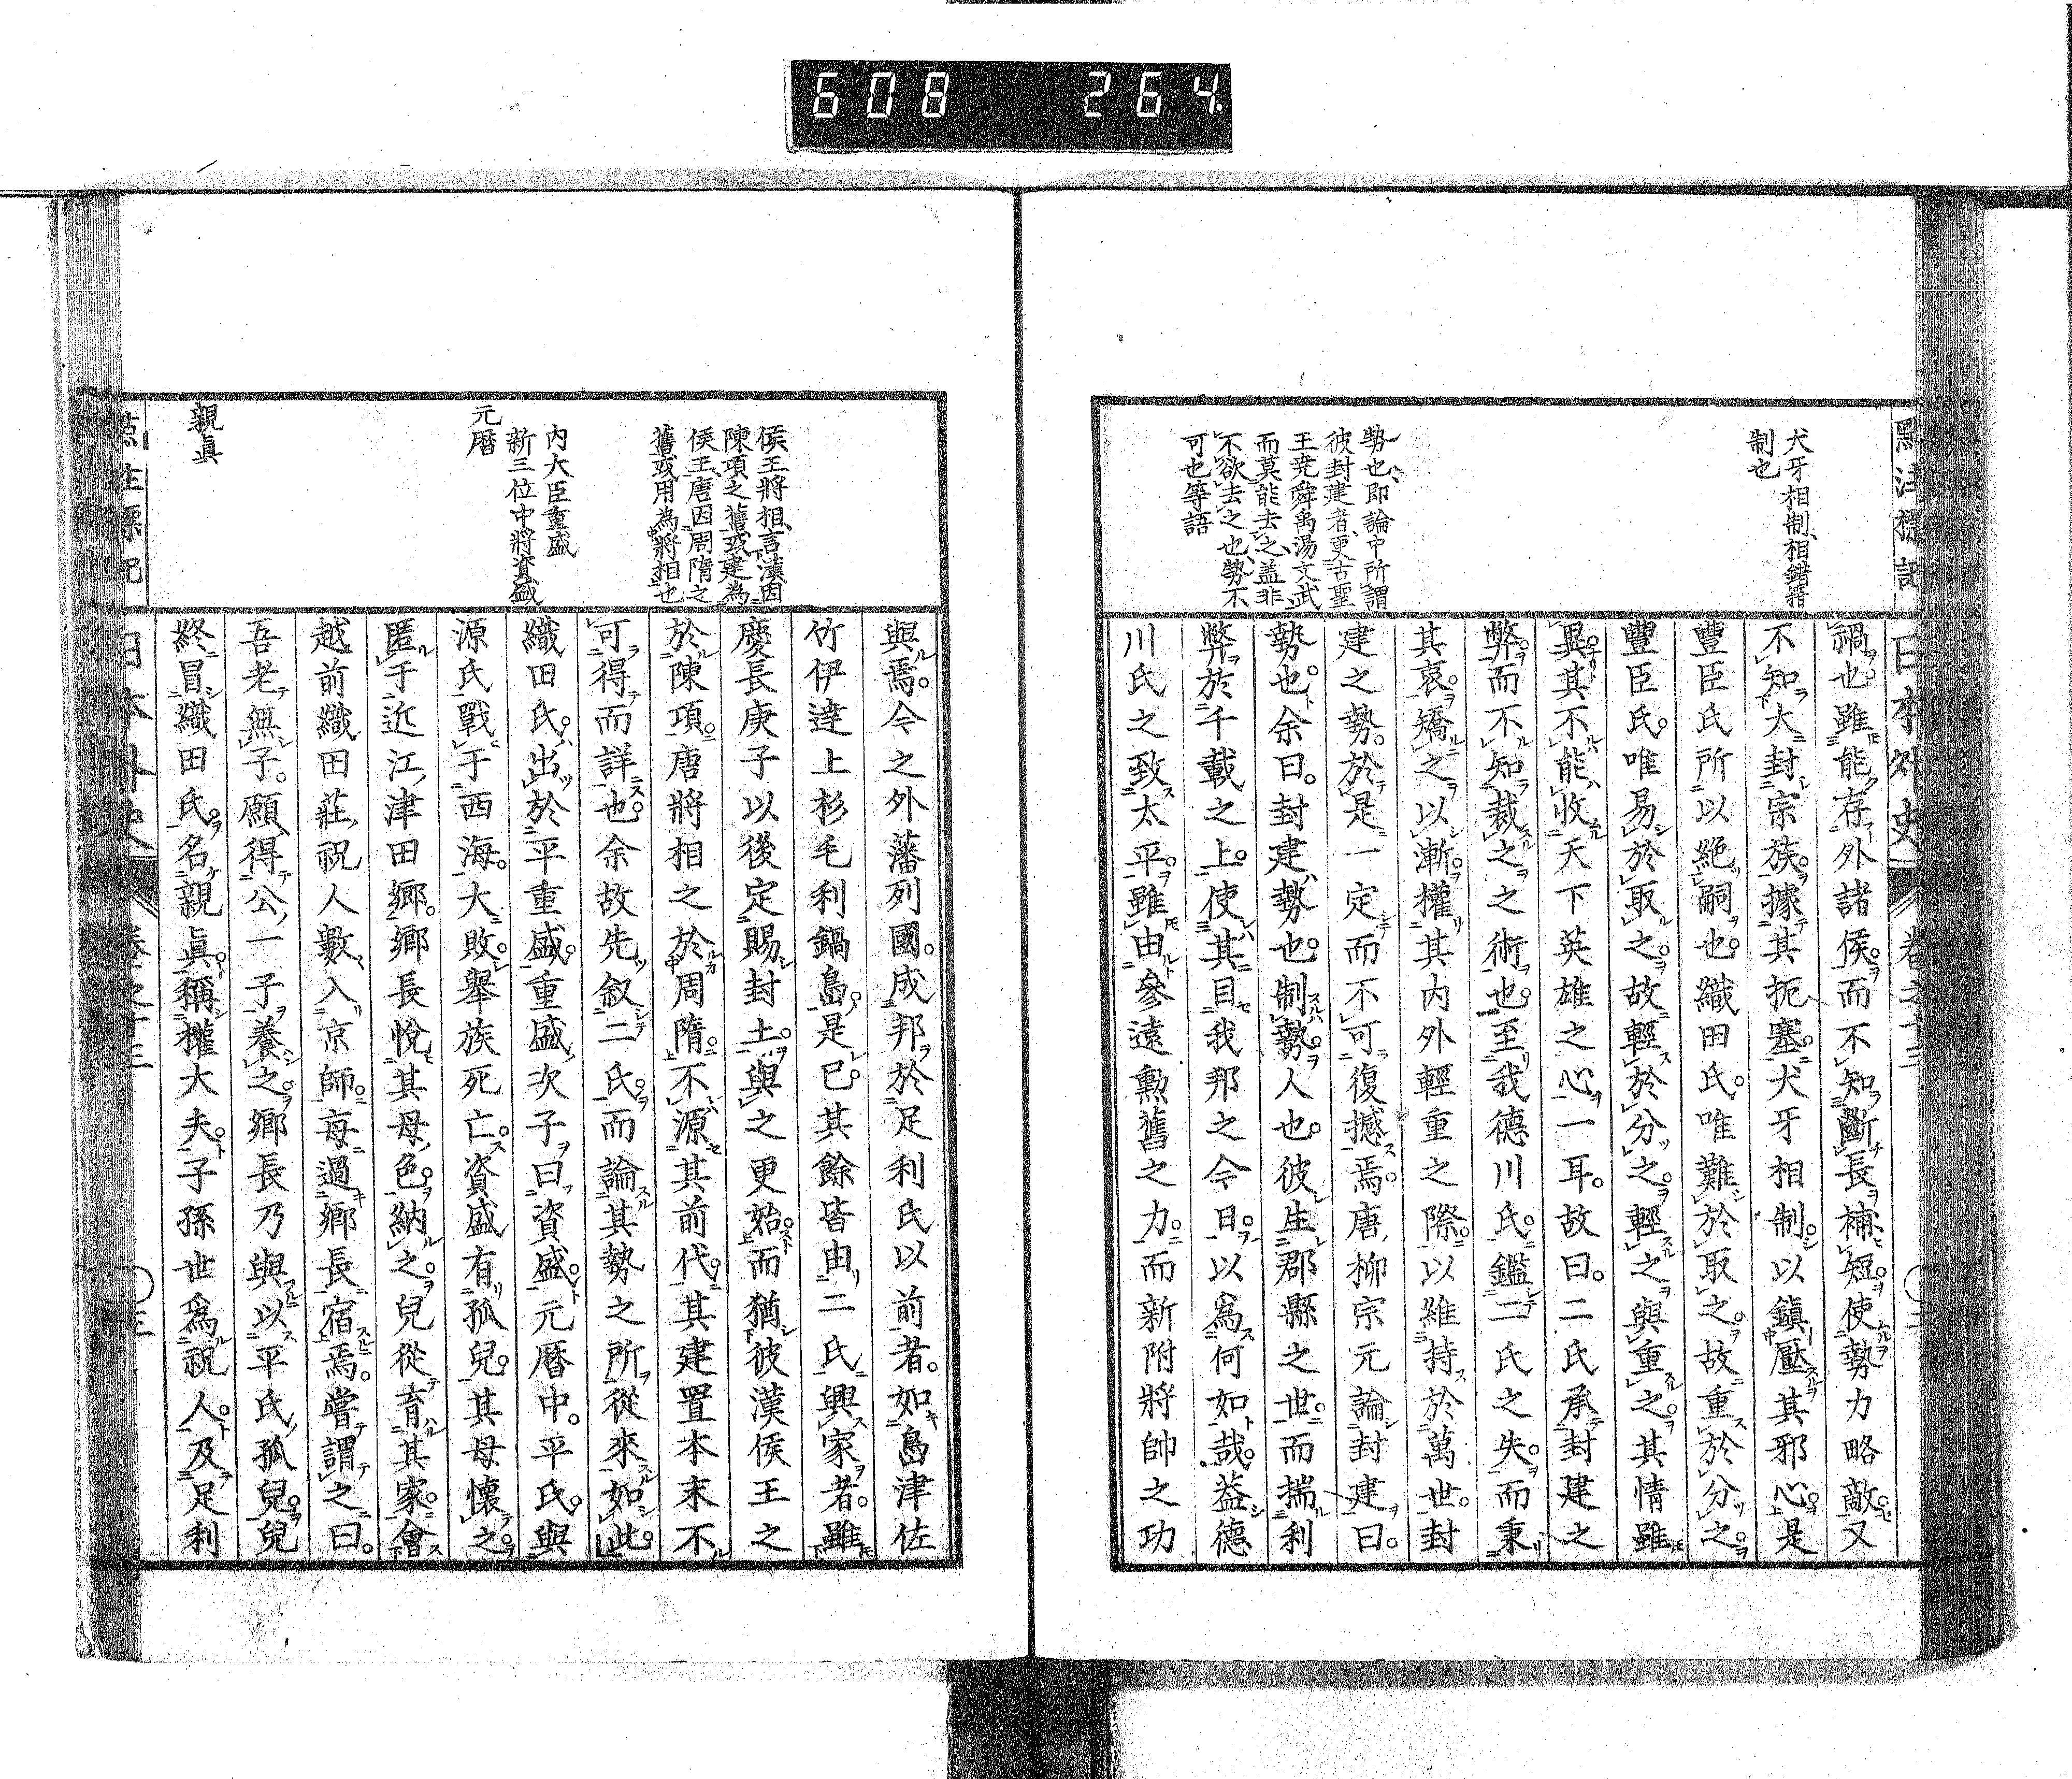 608 264
點注標記
日本外史 卷之十三
犬牙相制、相錯搢
制也
勢也、即論中所謂
彼封建者、更古聖
王堯舜禹湯文武
而莫能去之、蓋非
不欲去之也、勢不
可也等語
禍也雖能存外諸侯而不知斷長補短使勢力略敵又
不知大封宗族據其扼塞犬牙相制以鎭壓其邪心是
豐臣氏所以絕嗣也織田氏唯難於取之故重於分之
豐臣氏唯易於取之故輕於分之輕之與重之其情雖
異其不能收天下英雄之心一耳故曰二氏承封建之
弊而不知裁之之術也至我德川氏鑑二氏之失而秉
其衷矯之以漸權其內外輕重之際以維持於萬世封
建之勢於是一定而不可復撼焉唐柳宗元論封建曰
勢也余曰封建勢也制勢人也彼生郡縣之世而揣利
弊於千載之上使其目我邦之今日以爲何如哉蓋德
川氏之致太平雖由參遠勳舊之力而新附將帥之功
侯王將相、言漢因
陳項之舊或建為
侯王、唐因周隋之
舊或用為將相也
內大臣重盛
新三位中將資盛
元曆
親眞
與焉今之外藩列國成邦於足利氏以前者如島津佐
竹伊達上杉毛利鍋島是已其餘皆由二氏興家者雖
慶長庚子以後定賜封土與之更始而猶彼漢侯王之
於陳項唐將相之於周隋不源其前代其建置本末不
可得而詳也余故先叙二氏而論其勢之所從來如此
織田氏出於平重盛重盛次子曰資盛元曆中平氏與
源氏戰于西海大敗舉族死亡資盛有孤兒其母懷之
匿于近江津田鄉鄉長悅其母色納之兒從育其家會
越前織田莊祝人數入京師每過鄉長宿焉嘗謂之曰
吾老無子願得公一子養之鄉長乃與以平氏孤兒兒
終冒織田氏名親眞稱權大夫子孫世爲祝人及足利
日本外史 卷之十三 三